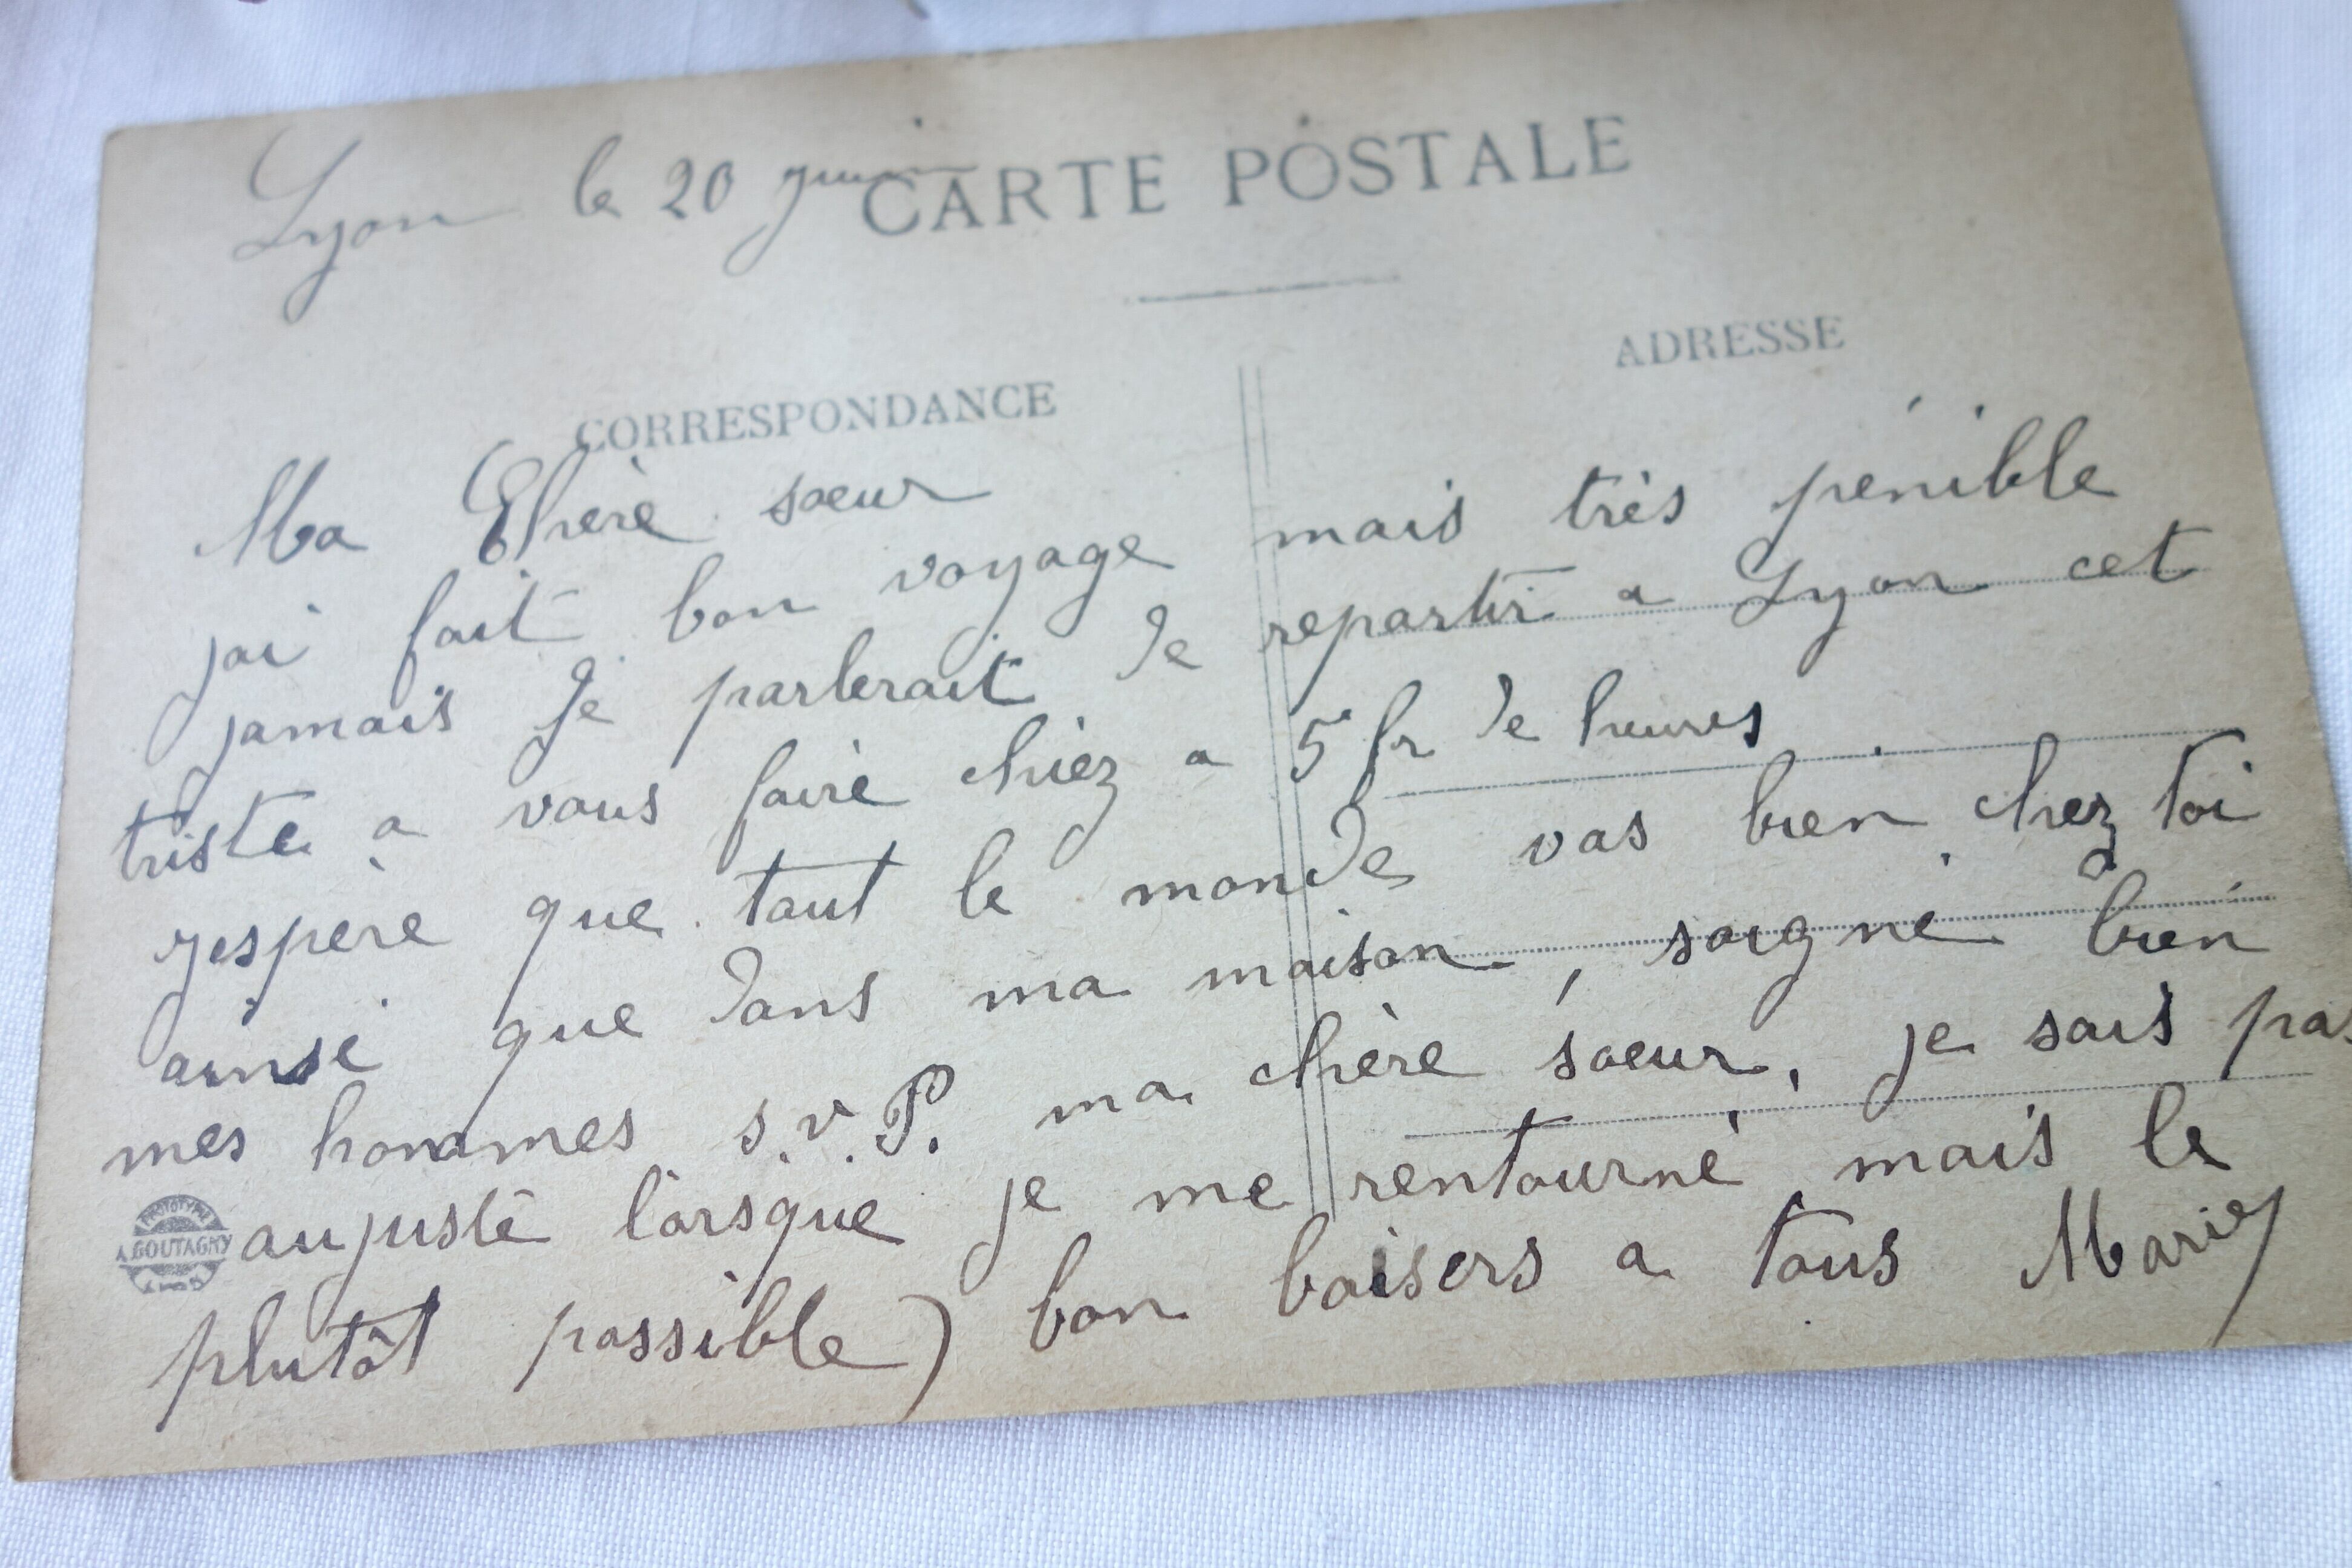 Lyon le 20 juin
CARTE POSTALE
CORRESPONDANCE
ADRESSE
Ma Chère soeur
jai fait bon voyage mais très pénible
jamais je parlerait de repartir a Lyon cet
triste a vous faire chiez a 5 fr de heures
jespère que tout le monde vas bien chez toi
ainsi que dans ma maison, soigne bien
mes hommes s.v.P. ma chère soeur, je sais pas
aujuste lorsque je me rentourne mais le
plutôt possible) bon baisers a tous Marie
PHOTOTYPIE
A. GOUTAGNY